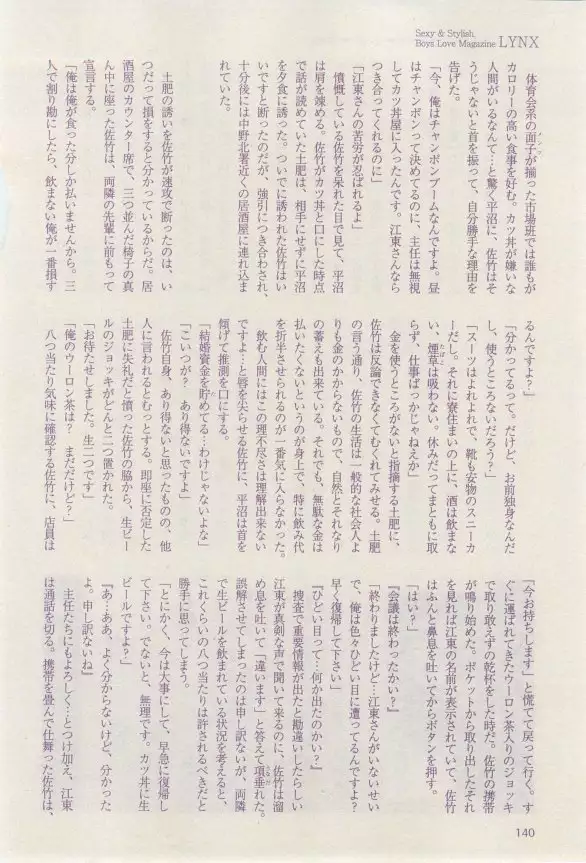 Sexy & Stylish,
Boys Love Magazine LYNX
体育会系の面子が揃った市場班では誰もが
カロリーの高い食事を好む。カツ丼が嫌いな
人間がいるなんて…と驚く平沼に、佐竹はそ
うじゃないと首を振って、自分勝手な理由を
告げた。
「今、俺はチャンポンブームなんですよ。昼
はチャンポンって決めてるのに、主任は無視
してカツ丼屋に入ったんです。江東さんなら
つき合ってくれるのに」
「江東さんの苦労が忍ばれるよ」
憤慨している佐竹を呆れた目で見て、平沼
は肩を竦める。佐竹がカツ丼と口にした時点
で話が読めていた土肥は、相手にせずに平沼
を夕食に誘った。ついでに誘われた佐竹はい
いですと断ったのだが、強引につき合わされ、
十分後には中野北署近くの居酒屋に連れ込ま
れていた。
土肥の誘いを佐竹が速攻で断ったのは、い
つだって損をすると分かっているからだ。居
酒屋のカウンター席で、三つ並んだ椅子の真
ん中に座った佐竹は、両隣の先輩に前もって
宣言する。
「俺は俺が食った分しか払いませんから。三
人で割り勘にしたら、飲まない俺が一番損す
るんですよ?」
「分かってるって。だけど、お前独身なんだ
し、使うところないだろう?」
「スーツはよれよれで、靴も安物のスニーカ
ーだし。それに寮住まいの上に、酒は飲まな
い、煙草は吸わない。休みだってまともに取
らず、仕事ばっかじゃねえか」
金を使うところがないと指摘する土肥に、
佐竹は反論できなくてむくれてみせる。土肥
の言う通り、佐竹の生活は一般的な社会人よ
りも金のかからないもので、自然とそれなり
の蓄えも出来ている。それでも、無駄な金は
払いたくないというのが身上で、特に飲み代
を折半させられるのが一番気に入らなかった。
飲む人間にはこの理不尽さは理解出来ない
ですよ…と唇を尖らせる佐竹に、平沼は首を
傾げて推測を口にする。
「結婚資金を貯めてる…わけじゃないよな」
「こいつが? あり得ないですよ」
佐竹自身、あり得ないと思ったものの、他
人に言われるとむっとする。即座に否定した
土肥に失礼だと憤った佐竹の脇から、生ビー
ルのジョッキがどんと二つ置かれた。
「お待たせしました。生二つです」
「俺のウーロン茶は? まだだけど?」
八つ当たり気味に確認する佐竹に、店員は
「今お持ちします」と慌てて戻って行く。す
ぐに運ばれてきたウーロン茶入りのジョッキ
で取り敢えずの乾杯をした時だ。佐竹の携帯
が鳴り始めた。ポケットから取り出したそれ
を見れば江東の名前が表示されていて、佐竹
はふんと鼻息を吐いてからボタンを押す。
「はい?」
『会議は終わったかい?』
「終わりましたけど…江東さんがいないせい
で、俺は色々ひどい目に遭ってるんですよ?
早く復帰して下さい」
『ひどい目って…何か出たのかい?』
捜査で重要情報が出たと勘違いしたらしい
江東が真剣な声で聞いて来るのに、佐竹は溜
め息を吐いて「違います」と答えて項垂れた。
誤解させてしまったのは申し訳ないが、両隣
で生ビールを飲まれている状況を考えると、
これくらいの八つ当たりは許されるべきだと
勝手に思ってしまう。
「とにかく、今は大事にして、早急に復帰し
て下さい。でないと、無理です。カツ丼に生
ビールですよ?」
『あ…ああ、よく分からないけど、分かった
よ。申し訳ないね』
主任たちにもよろしく…とつけ加え、江東
は通話を切る。携帯を畳んで仕舞った佐竹は、
140